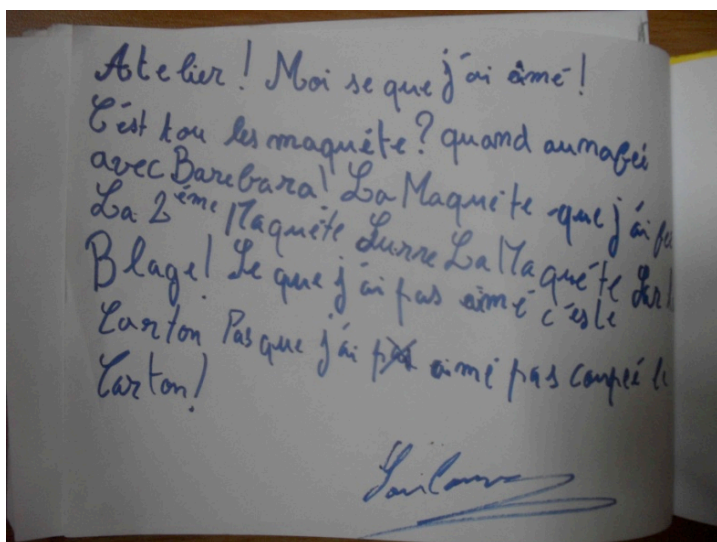 Atelier! Moi se que j'ai aimé!
C'est tou les maquéte? quand aunafei
avec Barebara! La Maquéte que j'ai fei
La 2ème Maquéte Surre La Maquéte Sur
Blage! Se que j'ai pas aimé c'est le
Carton Pasque j'ai aimé pas coupeé le
Carton!